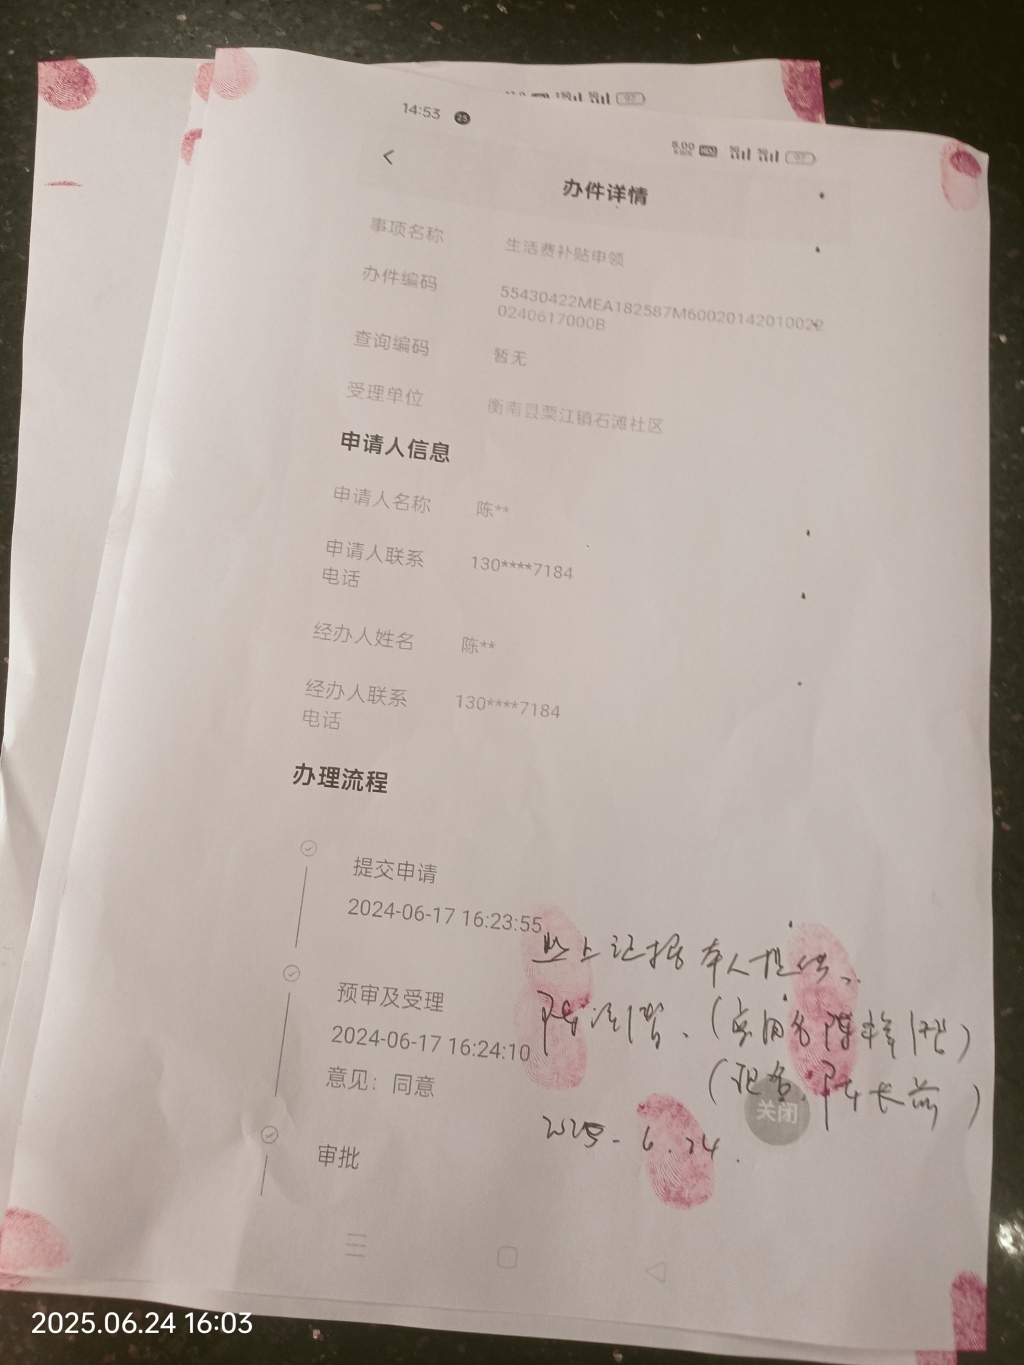 14:53 25
办件详情
事项名称 生活费补贴申领
办件编码 55430422MEA182587M60020142010022
0240617000B
查询编码 暂无
受理单位 衡南县栗江镇石滩社区
申请人信息
申请人名称 陈**
申请人联系 130****7184
电话
经办人姓名 陈**
经办人联系 130****7184
电话
办理流程
提交申请
2024-06-17 16:23:55
预审及受理
2024-06-17 16:24:10
意见：同意
审批
以上证据本人提供
2025-6.24.
关闭
2025.06.24 16:03